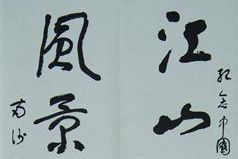 紀念中國
江山
風景